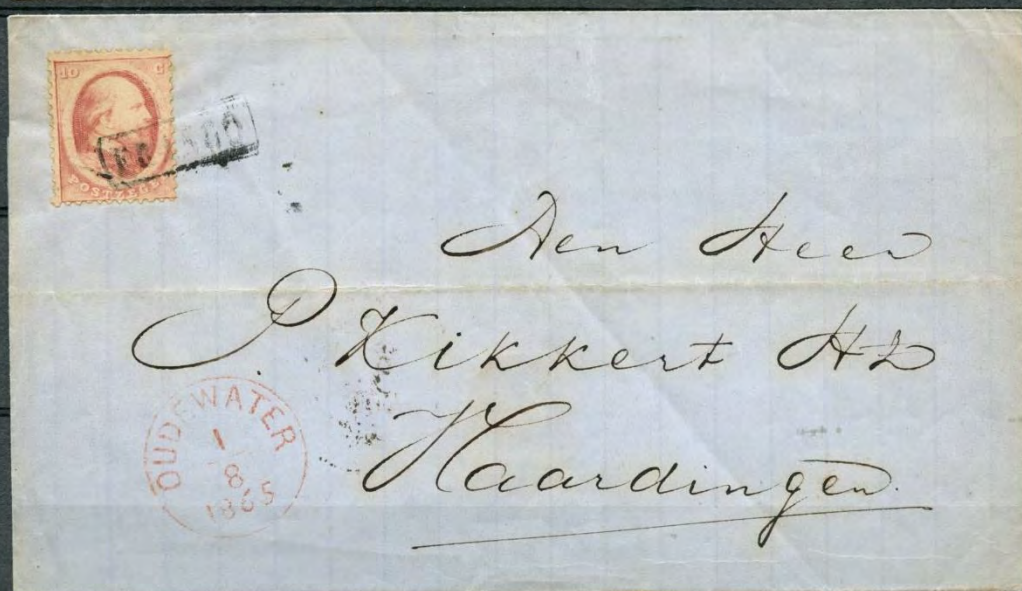 10 C
FRANCO
POSTZEGEL
Aen Heer
P. Kikkert Hz
Vlaardingen
OUDEWATER
1
8
1865